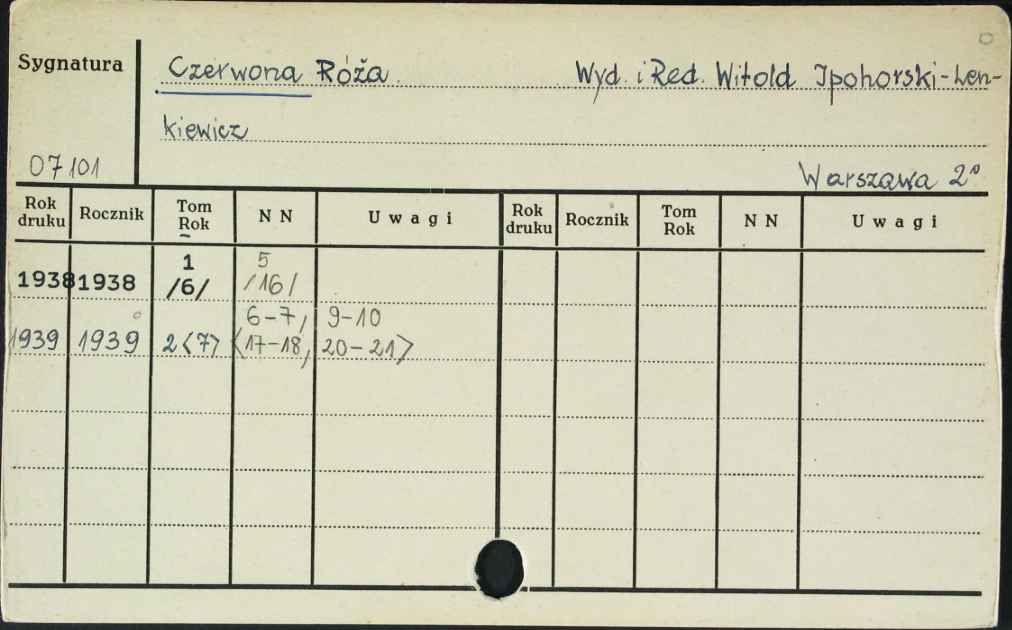 Sygnatura
Czerwona Róża. Wyd. i Red. Witold Ipohorski-Len-
kiewicz
07101
Warszawa 2°
Rok druku Rocznik Tom Rok N N Uwagi Rok druku Rocznik Tom Rok N N Uwagi
1938 1938 1 /6/ 5 /16/
1939 1939 2<7> 6-7, 9-10
<17-18, 20-21>